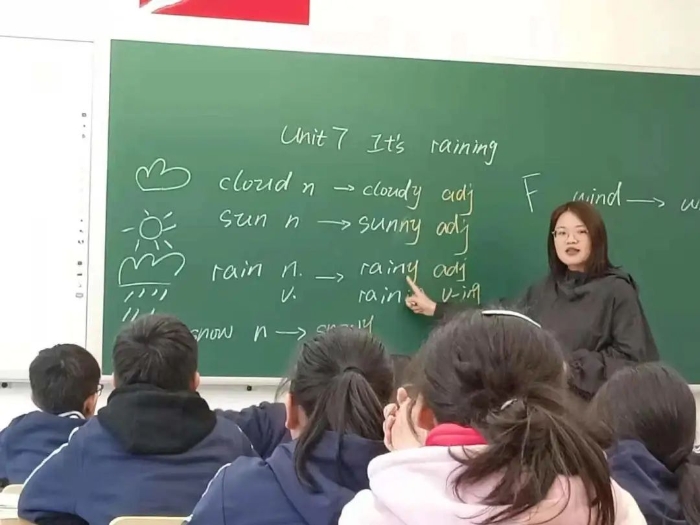 Unit 7 It's raining
cloud n → cloudy adj
sun n → sunny adj
rain n. → rainy adj
v. v-ing
snow n →
F wind →